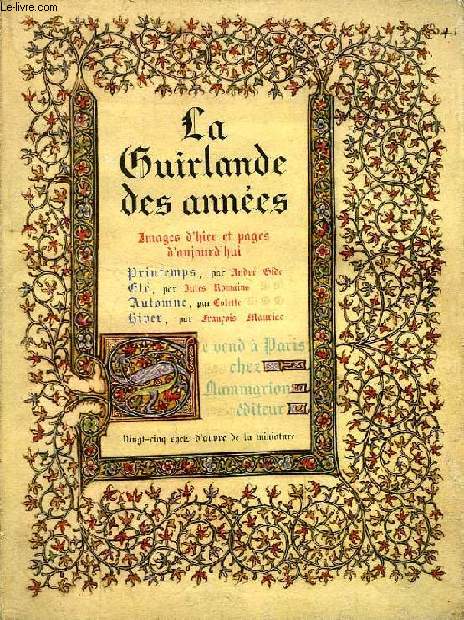 www.le-livre.com
La
Guirlande
des années
Images d'hier et pages
d'aujourd'hui
Printemps, par André Gide
Eté, par Jules Romains
Automne, par Colette
Hiver, par François Mauriac
Se vend à Paris
chez
Flammarion
éditeur
Vingt-cinq chefs d'œuvre de la miniature